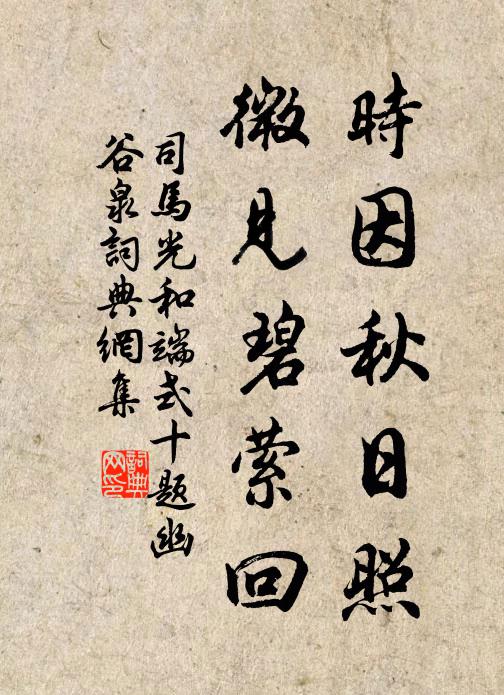 時因秋日照
微見碧縈回
司馬光和端式十題幽
谷泉詞典網集
詞典
网印